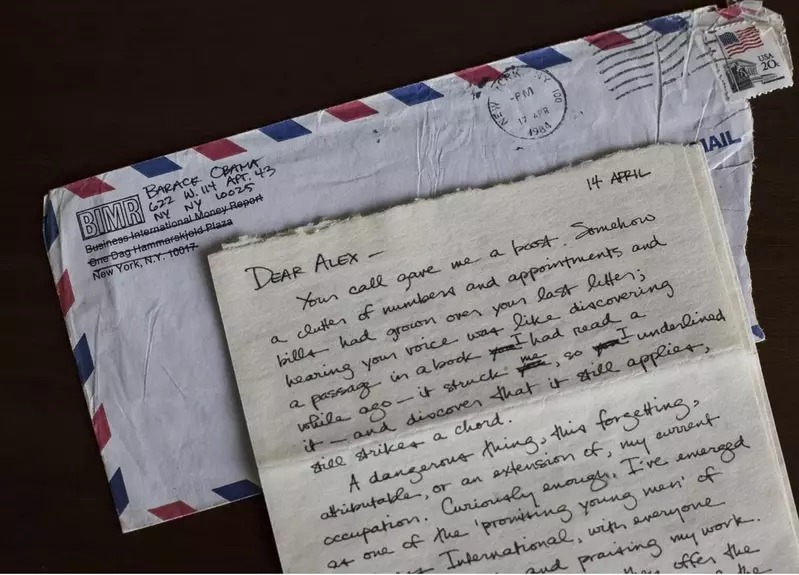 BARACK OBAMA
622 W. 114 APT. 43
NY NY 10025
BIMR
Business International Money Report
One Dag Hammarskjold Plaza
New York, N.Y. 10017
NEW YORK, NY 100
-PM
17 APR
1984
USA
20c
MAIL
14 APRIL
DEAR ALEX —
Your call gave me a boost. Somehow
a clutter of numbers and appointments and
bills had grown over your last letter;
hearing your voice was like discovering
a passage in a book I had read a
while ago — it struck me, so I underlined
it — and discover that it still applies,
still strikes a chord.
A dangerous thing, this forgetting,
attributable, or an extension of, my current
occupation. Curiously enough, I've emerged
as one of the 'promising young men' of
International, with everyone
and praising my work.
offer the
the